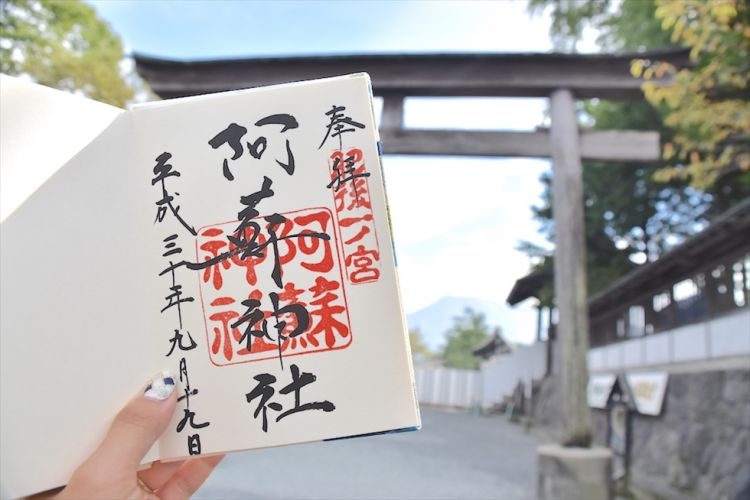 奉拝
肥後一ノ宮
阿蘇神社
阿蘇神社
平成三十年九月十九日